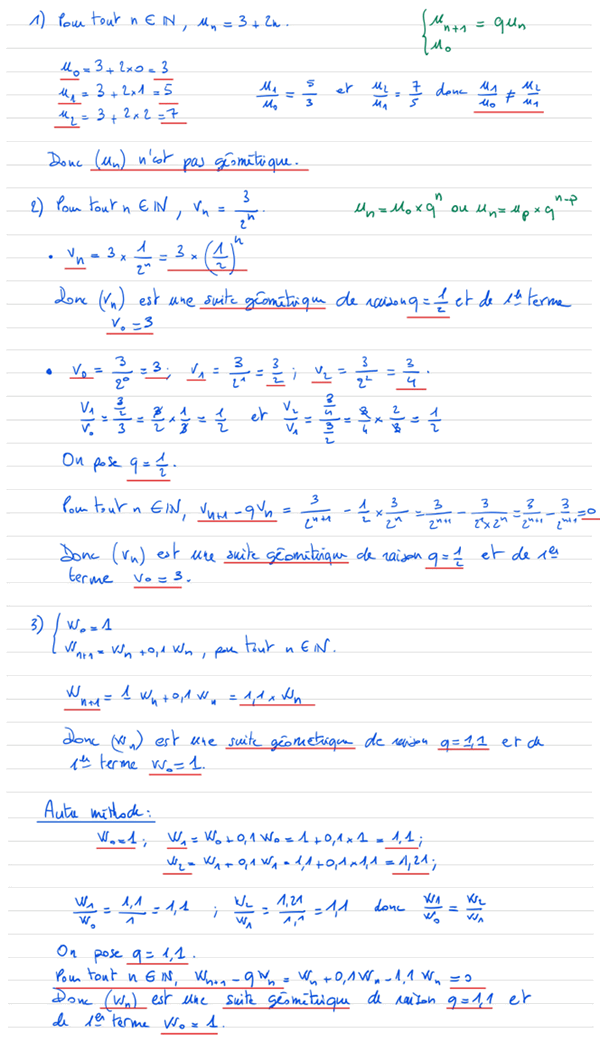 1) Pour tout n ∈ ℕ, uₙ = 3 + 2n. { uₙ₊₁ = quₙ
u₀
u₀ = 3 + 2×0 = 3
u₁ = 3 + 2×1 = 5 u₁/u₀ = 5/3 et u₂/u₁ = 7/5 donc u₁/u₀ ≠ u₂/u₁
u₂ = 3 + 2×2 = 7
Donc (uₙ) n'est pas géométrique.
2) Pour tout n ∈ ℕ, vₙ = 3/2ⁿ. uₙ = u₀ × qⁿ ou uₙ = uₚ × qⁿ⁻ᵖ
• vₙ = 3 × 1/2ⁿ = 3 × (1/2)ⁿ
Donc (vₙ) est une suite géométrique de raison q = 1/2 et de 1er terme
v₀ = 3
• v₀ = 3/2⁰ = 3 ; v₁ = 3/2¹ = 3/2 ; v₂ = 3/2² = 3/4.
v₁/v₀ = (3/2)/3 = 3/2 × 1/3 = 1/2 et v₂/v₁ = (3/4)/(3/2) = 3/4 × 2/3 = 1/2
On pose q = 1/2.
Pour tout n ∈ ℕ, vₙ₊₁ - qvₙ = 3/2ⁿ⁺¹ - 1/2 × 3/2ⁿ = 3/2ⁿ⁺¹ - 3/(2¹×2ⁿ) = 3/2ⁿ⁺¹ - 3/2ⁿ⁺¹ = 0
Donc (vₙ) est une suite géométrique de raison q = 1/2 et de 1er
terme v₀ = 3.
3) { w₀ = 1
wₙ₊₁ = wₙ + 0,1 wₙ, pour tout n ∈ ℕ.
wₙ₊₁ = 1 wₙ + 0,1 wₙ = 1,1 × wₙ
Donc (wₙ) est une suite géométrique de raison q = 1,1 et de
1er terme w₀ = 1.
Autre méthode :
w₀ = 1 ; w₁ = w₀ + 0,1 w₀ = 1 + 0,1 × 1 = 1,1 ;
w₂ = w₁ + 0,1 w₁ = 1,1 + 0,1 × 1,1 = 1,21 ;
w₁/w₀ = 1,1/1 = 1,1 ; w₂/w₁ = 1,21/1,1 = 1,1 donc w₁/w₀ = w₂/w₁
On pose q = 1,1.
Pour tout n ∈ ℕ, wₙ₊₁ - qwₙ = wₙ + 0,1 wₙ - 1,1 wₙ = 0
Donc (wₙ) est une suite géométrique de raison q = 1,1 et
de 1er terme w₀ = 1.